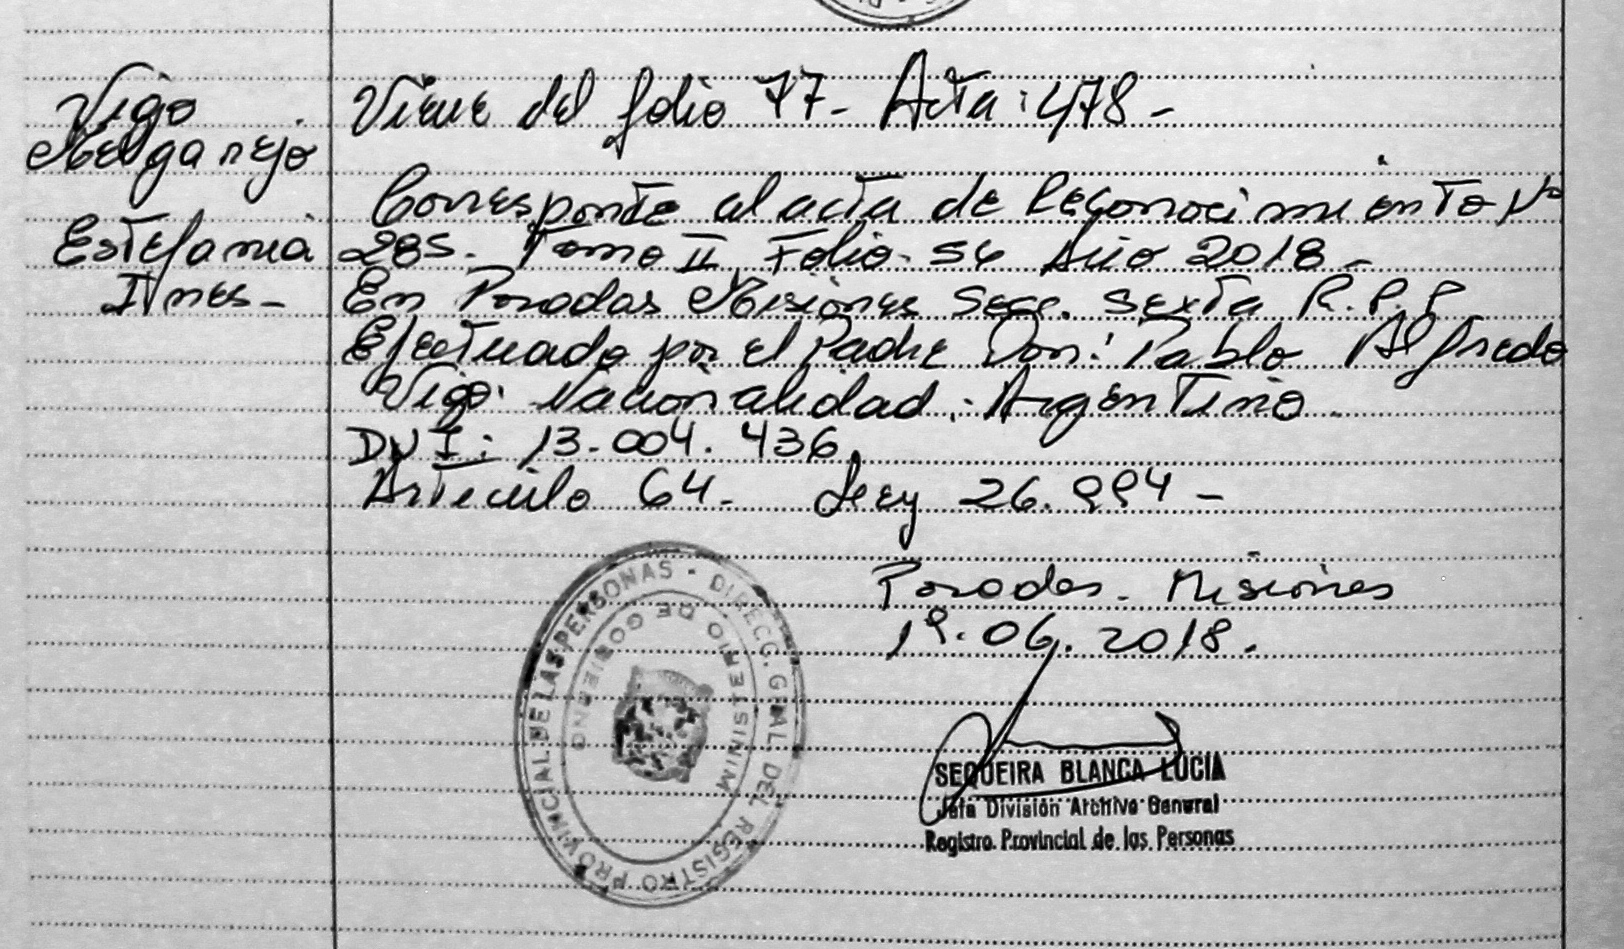 Vigo
Melgarejo
Estefania
Ines-
Viene del folio 77- Acta: 478-
Corresponde al acta de Reconocimiento Nº
285. Tomo II Folio. 56 Año 2018-
En Posadas Misiones Secc. Sexta R.P.P
Efectuado por el Padre Don: Pablo Alfredo
Vigo. Nacionalidad: Argentino.
DNI: 13.004.436
Articulo 64- Ley 26.994-
Posadas. Misiones
19.06.2018.
PROVINCIAL DE LAS PERSONAS - DIRECC. GRAL. DEL REGISTRO
MINISTERIO DE GOBIERNO
SEQUEIRA BLANCA LUCIA
Jefa División Archivo General
Registro Provincial de las Personas